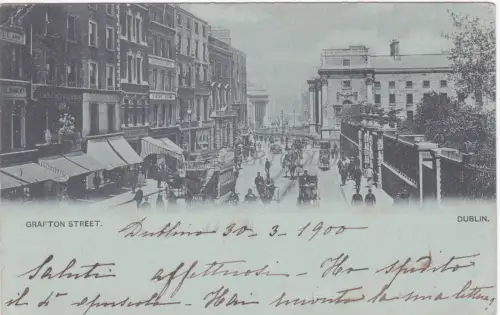 GRAFTON STREET.
DUBLIN.
Dublino 30-3-1900
Saluti affettuosi - Ho spedito
il 4° opuscolo - Hai la mia lettera?